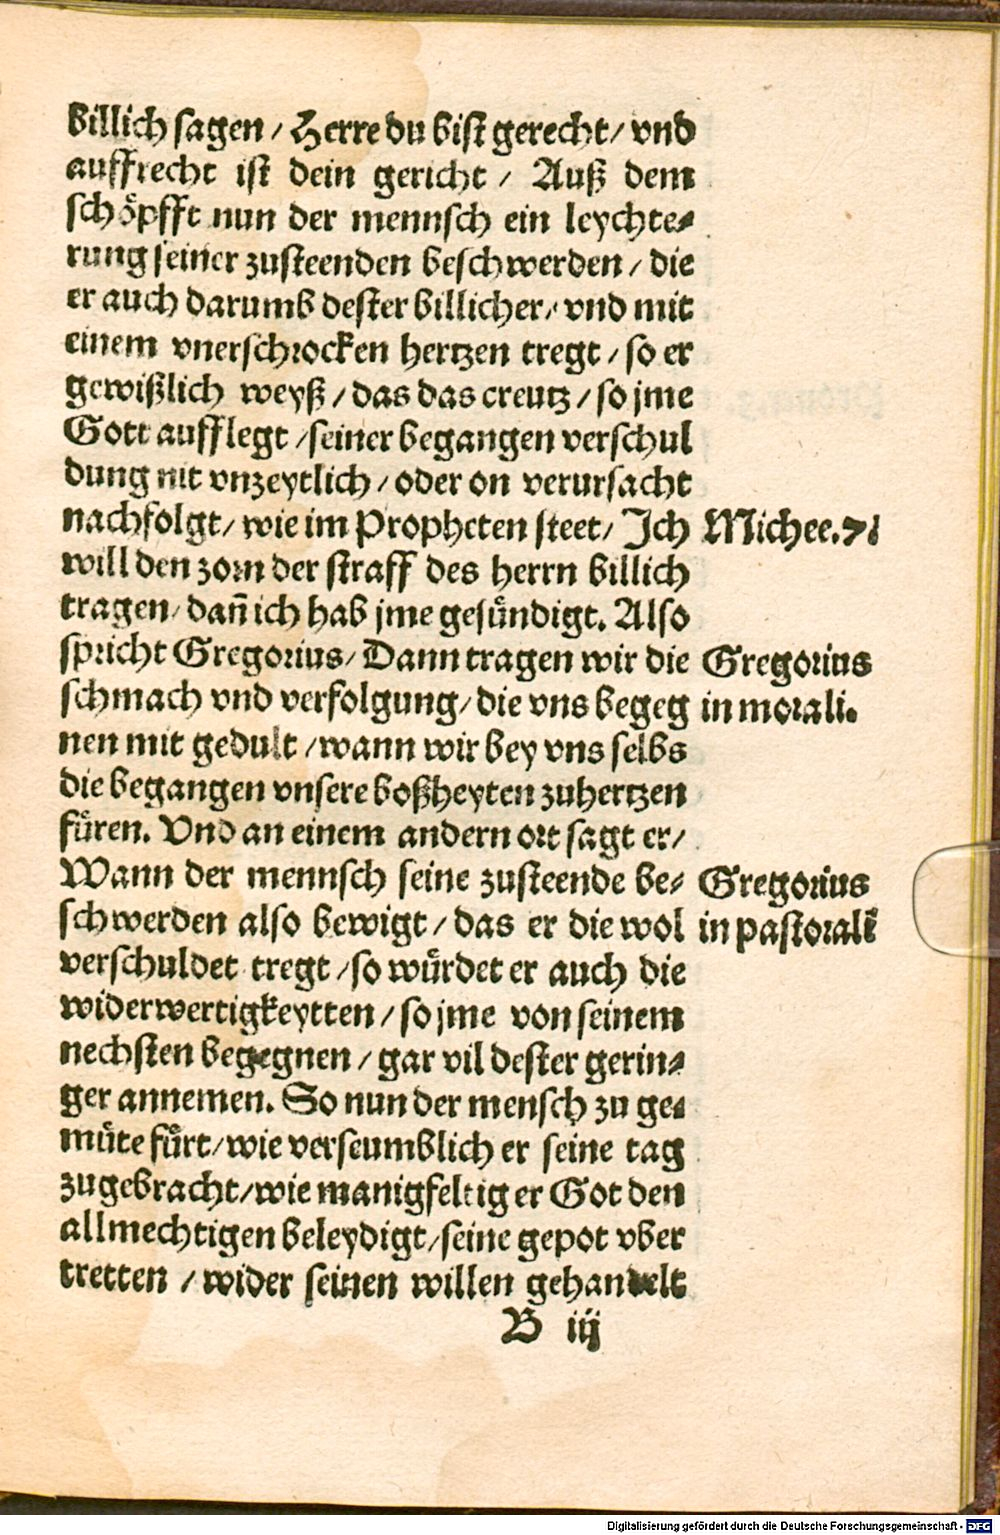 billich sagen / Herre du bist gerecht / vnd
auffrecht ist dein gericht / Auß dem
schoͤpfft nun der mennsch ein leychte⸗
rung seiner zusteenden beschwerden / die
er auch darumb dester billicher / vnd mit
einem vnerschrocken hertzen tregt / so er
gewißlich weyß / das das creutz / so jme
Gott aufflegt / seiner begangen verschul
dung nit vnzeytlich / oder on verursacht
nachfolgt / wie im Propheten steet / Ich
Michee. 7
will den zorn der straff des herrn billich
tragen / dañ ich hab jme gesuͤndigt. Also
spricht Gregorius / Dann tragen wir die
Gregorius
schmach vnd verfolgung / die vns begeg
in morali.
nen mit gedult / wann wir bey vns selbs
die begangen vnsere boßheyten zuhertzen
fuͤren. Vnd an einem andern ort sagt er /
Wann der mennsch seine zusteende be⸗
Gregorius
schwerden also bewigt / das er die wol
in pastorali
verschuldet tregt / so wuͤrdet er auch die
widerwertigkeytten / so jme von seinem
nechsten begegnen / gar vil dester gerin⸗
ger annemen. So nun der mensch zu ge⸗
muͤte fuͤrt / wie verseumblich er seine tag
zugebracht / wie manigfeltig er Got den
allmechtigen beleydigt / seine gepot vber
tretten / wider seinen willen gehandelt
B iij
Digitalisierung gefördert durch die Deutsche Forschungsgemeinschaft - DFG